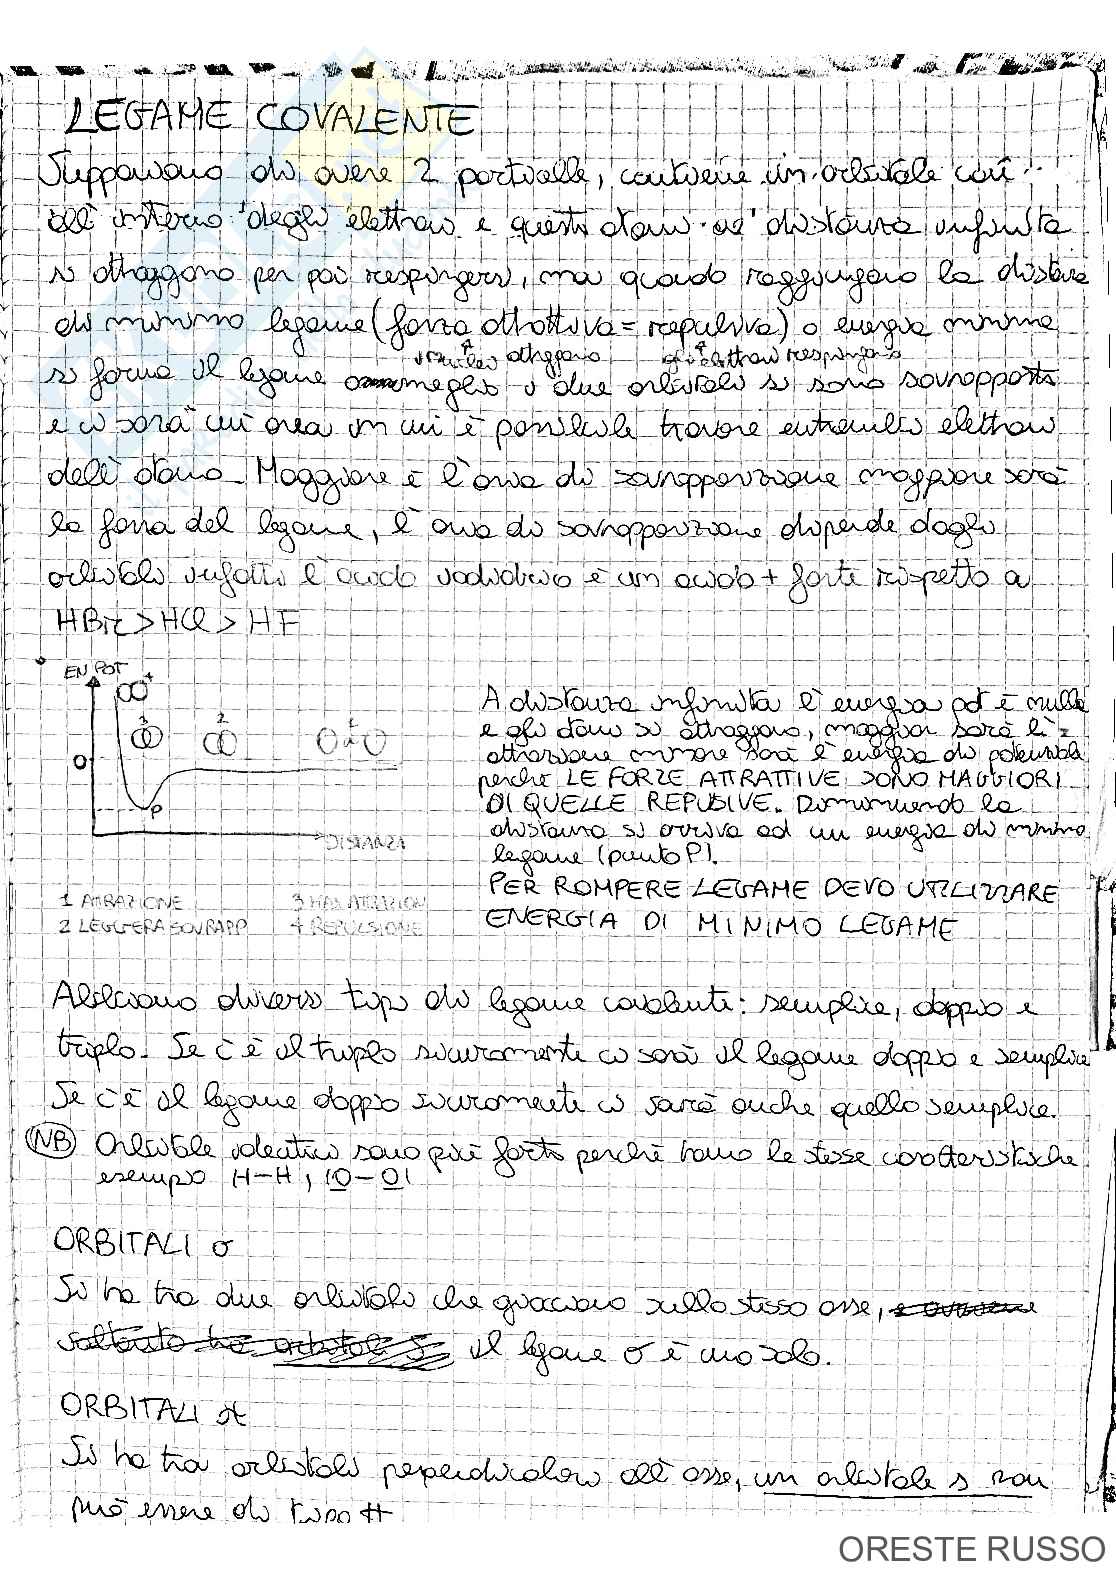 LEGAME COVALENTE
Supponiamo di avere 2 particelle, contiene un orbitale con
all'interno degli elettroni e questi atomi ad distanza infinita
si attraggono per poi respingersi, ma quando raggiungono la distanza
di minimo legame (forza attrattiva = repulsiva) o energia minima
nuclei attraggono gli elettroni respingono
si forma il legame meglio i due orbitali si sono sovrapposti
e ci sarà un'area in cui è possibile trovare entrambi elettroni
dell'atomo. Maggiore è l'area di sovrapposizione maggiore sarà
la forza del legame, l'area di sovrapposizione dipende dagli
orbitali infatti l'acido iodidrico è un acido + forte rispetto a
HBr > HCl > HF
EN POT
4
3
2
1
0
P
DISTANZA
1 ATTRAZIONE
2 LEGGERA SOVRAPP
3 MAX ATTRAZION
4 REPULSIONE
A distanza infinita l'energia pot è nulla
e gli atomi si attraggono, maggior sarà l'
attrazione minore sarà l'energia di potenziale
perché LE FORZE ATTRATTIVE SONO MAGGIORI
DI QUELLE REPUSIVE. Diminuendo la
distanza si arriva ad un energia di minimo
legame (punto P).
PER ROMPERE LEGAME DEVO UTILIZZARE
ENERGIA DI MINIMO LEGAME
Abbiamo diversi tipi di legame covalenti: semplice, doppio e
triplo. Se c'è il triplo sicuramente ci sarà il legame doppio e semplice
Se c'è il legame doppio sicuramente ci sarà anche quello semplice.
NB Orbitale identici sono più forti perché hanno le stesse caratteristiche
esempio H-H, |O-O|
ORBITALI σ
Si ha tra due orbitali che giacciono sullo stesso asse, e avviene
soltanto tra orbitale s il legame σ è uno solo.
ORBITALI π
Si ha tra orbitali perpendicolari all'asse, un orbitale s non
può essere di tipo π
ORESTE RUSSO